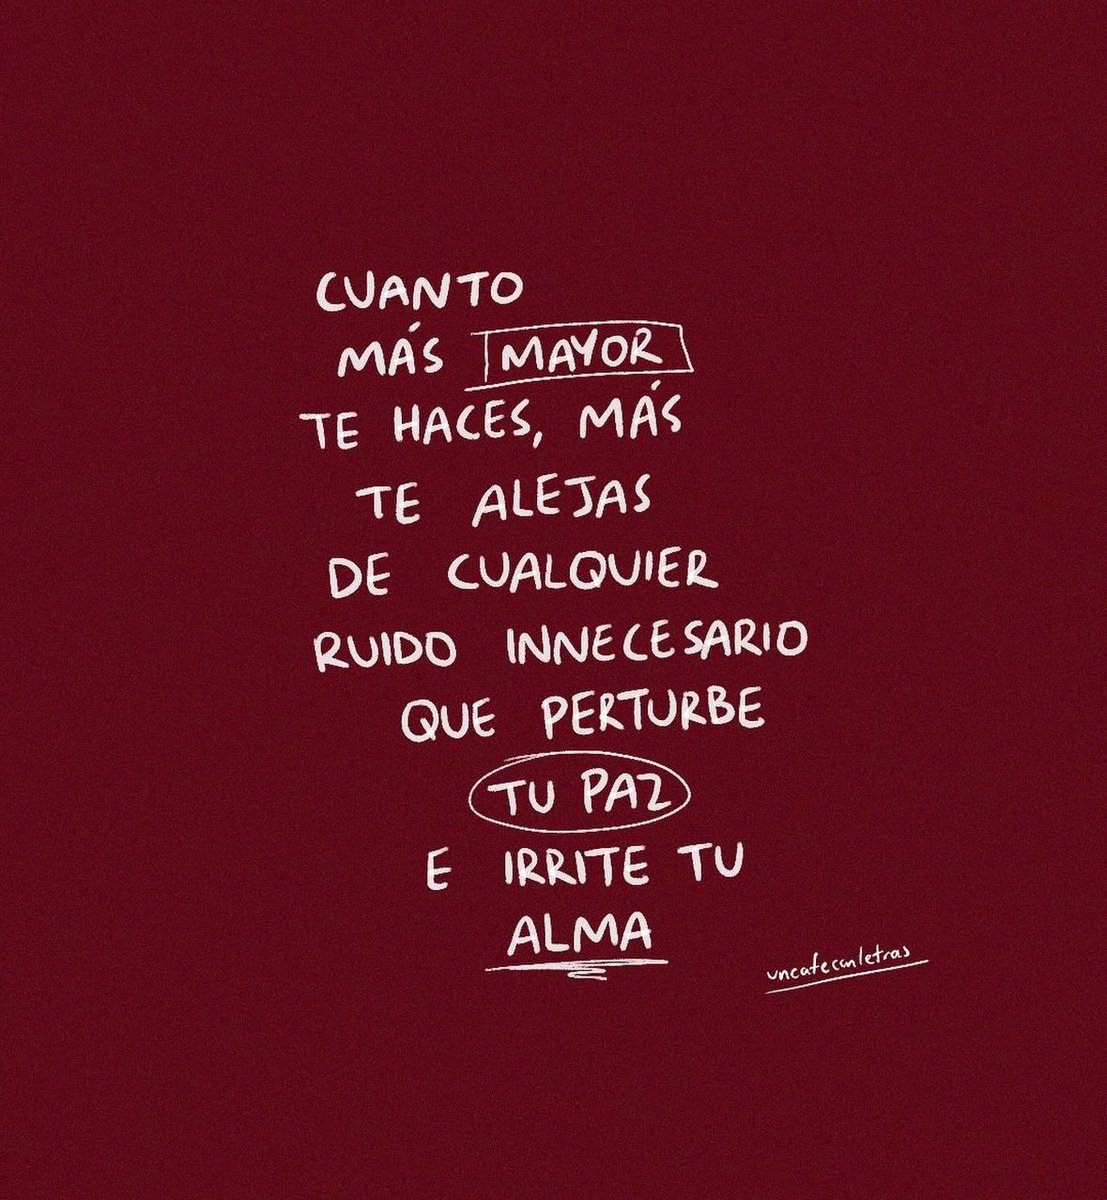 CUANTO
MÁS MAYOR
TE HACES, MÁS
TE ALEJAS
DE CUALQUIER
RUIDO INNECESARIO
QUE PERTURBE
TU PAZ
E IRRITE TU
ALMA
uncafeconletras